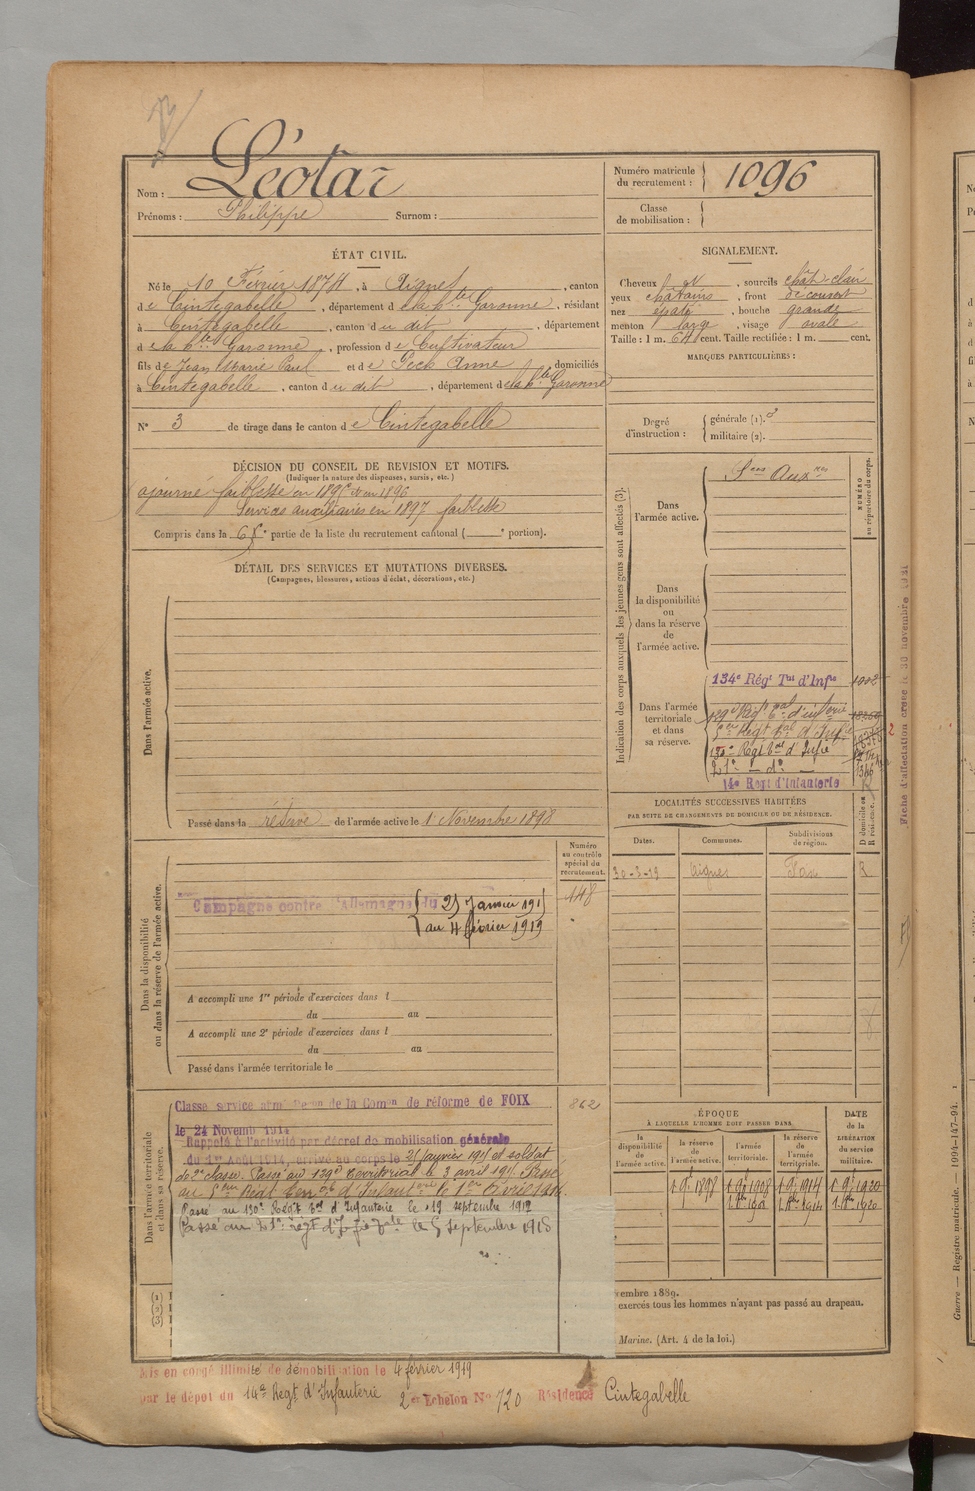 Nom : Léotar
Prénoms : Philippe Surnom :
Numéro matricule du recrutement : 1096
Classe de mobilisation :
ÉTAT CIVIL.
Né le 10 Février 1874, à Aignes, canton
de Cintegabelle, département de la Hte Garonne, résidant
à Cintegabelle, canton du dit, département
de la Hte Garonne, profession de Cultivateur
fils de Jean Marie Paul et de Peck Anne, domiciliés
à Cintegabelle, canton du dit, département de la Hte Garonne
N° 3 de tirage dans le canton de Cintegabelle
SIGNALEMENT.
Cheveux, sourcils chât-clair
yeux châtains, front découvert
nez épaté, bouche grande
menton large, visage ovale
Taille : 1 m. 64 cent. Taille rectifiée : 1 m. cent.
MARQUES PARTICULIÈRES :
Degré d'instruction :
générale (1). 3
militaire (2).
DÉCISION DU CONSEIL DE REVISION ET MOTIFS.
(Indiquer la nature des dispenses, sursis, etc.)
ajourné faiblesse en 1895 do en 1896
Services auxiliaires en 1897 faiblesse
Compris dans la 6e partie de la liste du recrutement cantonal ( e portion).
DÉTAIL DES SERVICES ET MUTATIONS DIVERSES.
(Campagnes, blessures, actions d'éclat, décorations, etc.)
Dans l'armée active.
Passé dans la réserve de l'armée active le 1 Novembre 1898
Indication des corps auxquels les jeunes gens sont affectés (3).
NUMÉRO au répertoire du corps.
Dans l'armée active.
Sces Auxres
Dans la disponibilité ou dans la réserve de l'armée active.
Dans l'armée territoriale et dans sa réserve.
134e Régt Tal d'Infie
129e Régt Tal d'infie
5me Régt Tal d'Infie
130e Régt Tal d'Infie
14e Regt d'Infanterie
LOCALITÉS SUCCESSIVES HABITÉES
PAR SUITE DE CHANGEMENTS DE DOMICILE OU DE RÉSIDENCE.
Dates. Communes. Subdivisions de région. D domicile ou R résidence.
30-3-19 Aignes R
Dans la disponibilité ou dans la réserve de l'armée active.
Numéro au contrôle spécial du recrutement.
448
Campagne contre l'Allemagne du 25 Janvier 1915
au 4 février 1919
A accompli une 1re période d'exercices dans l
du au
A accompli une 2e période d'exercices dans l
du au
Passé dans l'armée territoriale le
Dans l'armée territoriale et dans sa réserve.
862
Classé service armé de la Comon de réforme de FOIX
le 24 Novemb 1914
Rappelé à l'activité par décret de mobilisation générale
du 1er Août 1914, arrivé au corps le 25 janvier 1915 et soldat
de 2e classe. Passé au 129e Territorial le 3 avril 1915. Passé
au 5me Régt Terrial d'Infanterie le 1er Avril 1916.
Passé au 130e Régt Tal d'Infanterie le 19 septembre 1917
Passé au 21e régt d'Infie Tale le 5 septembre 1918
ÉPOQUE
À LAQUELLE L'HOMME DOIT PASSER DANS
la disponibilité de l'armée active. la réserve de l'armée active. l'armée territoriale. la réserve de l'armée territoriale.
DATE de la LIBÉRATION du service militaire.
1 9e 1898 1 9e 1908 1 9e 1914 1 9e 1920
embre 1889.
exercés tous les hommes n'ayant pas passé au drapeau.
Marine. (Art. 4 de la loi.)
Mis en congé illimité de démobilisation le 4 février 1919
par le dépôt du 14e Régt d'Infanterie 2e Echelon No 720 Résidence Cintegabelle
Fiche d'affectation créée le 30 novembre 1921
Guerre. — Registre matricule. — 1094-147-94.